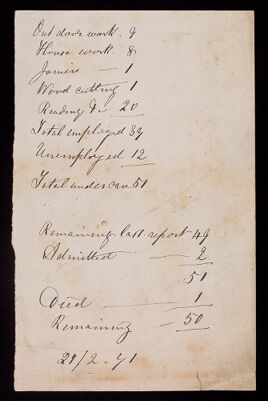 Out door work. 9
House work. 8
Joiner — 1
Wood cutting 1
Reading &c 20
Total employed 39
Unemployed 12
Total under care 51
Remaining last report 49
Admitted — 2
51
Died — 1
Remaining — 50
21/2 - 71